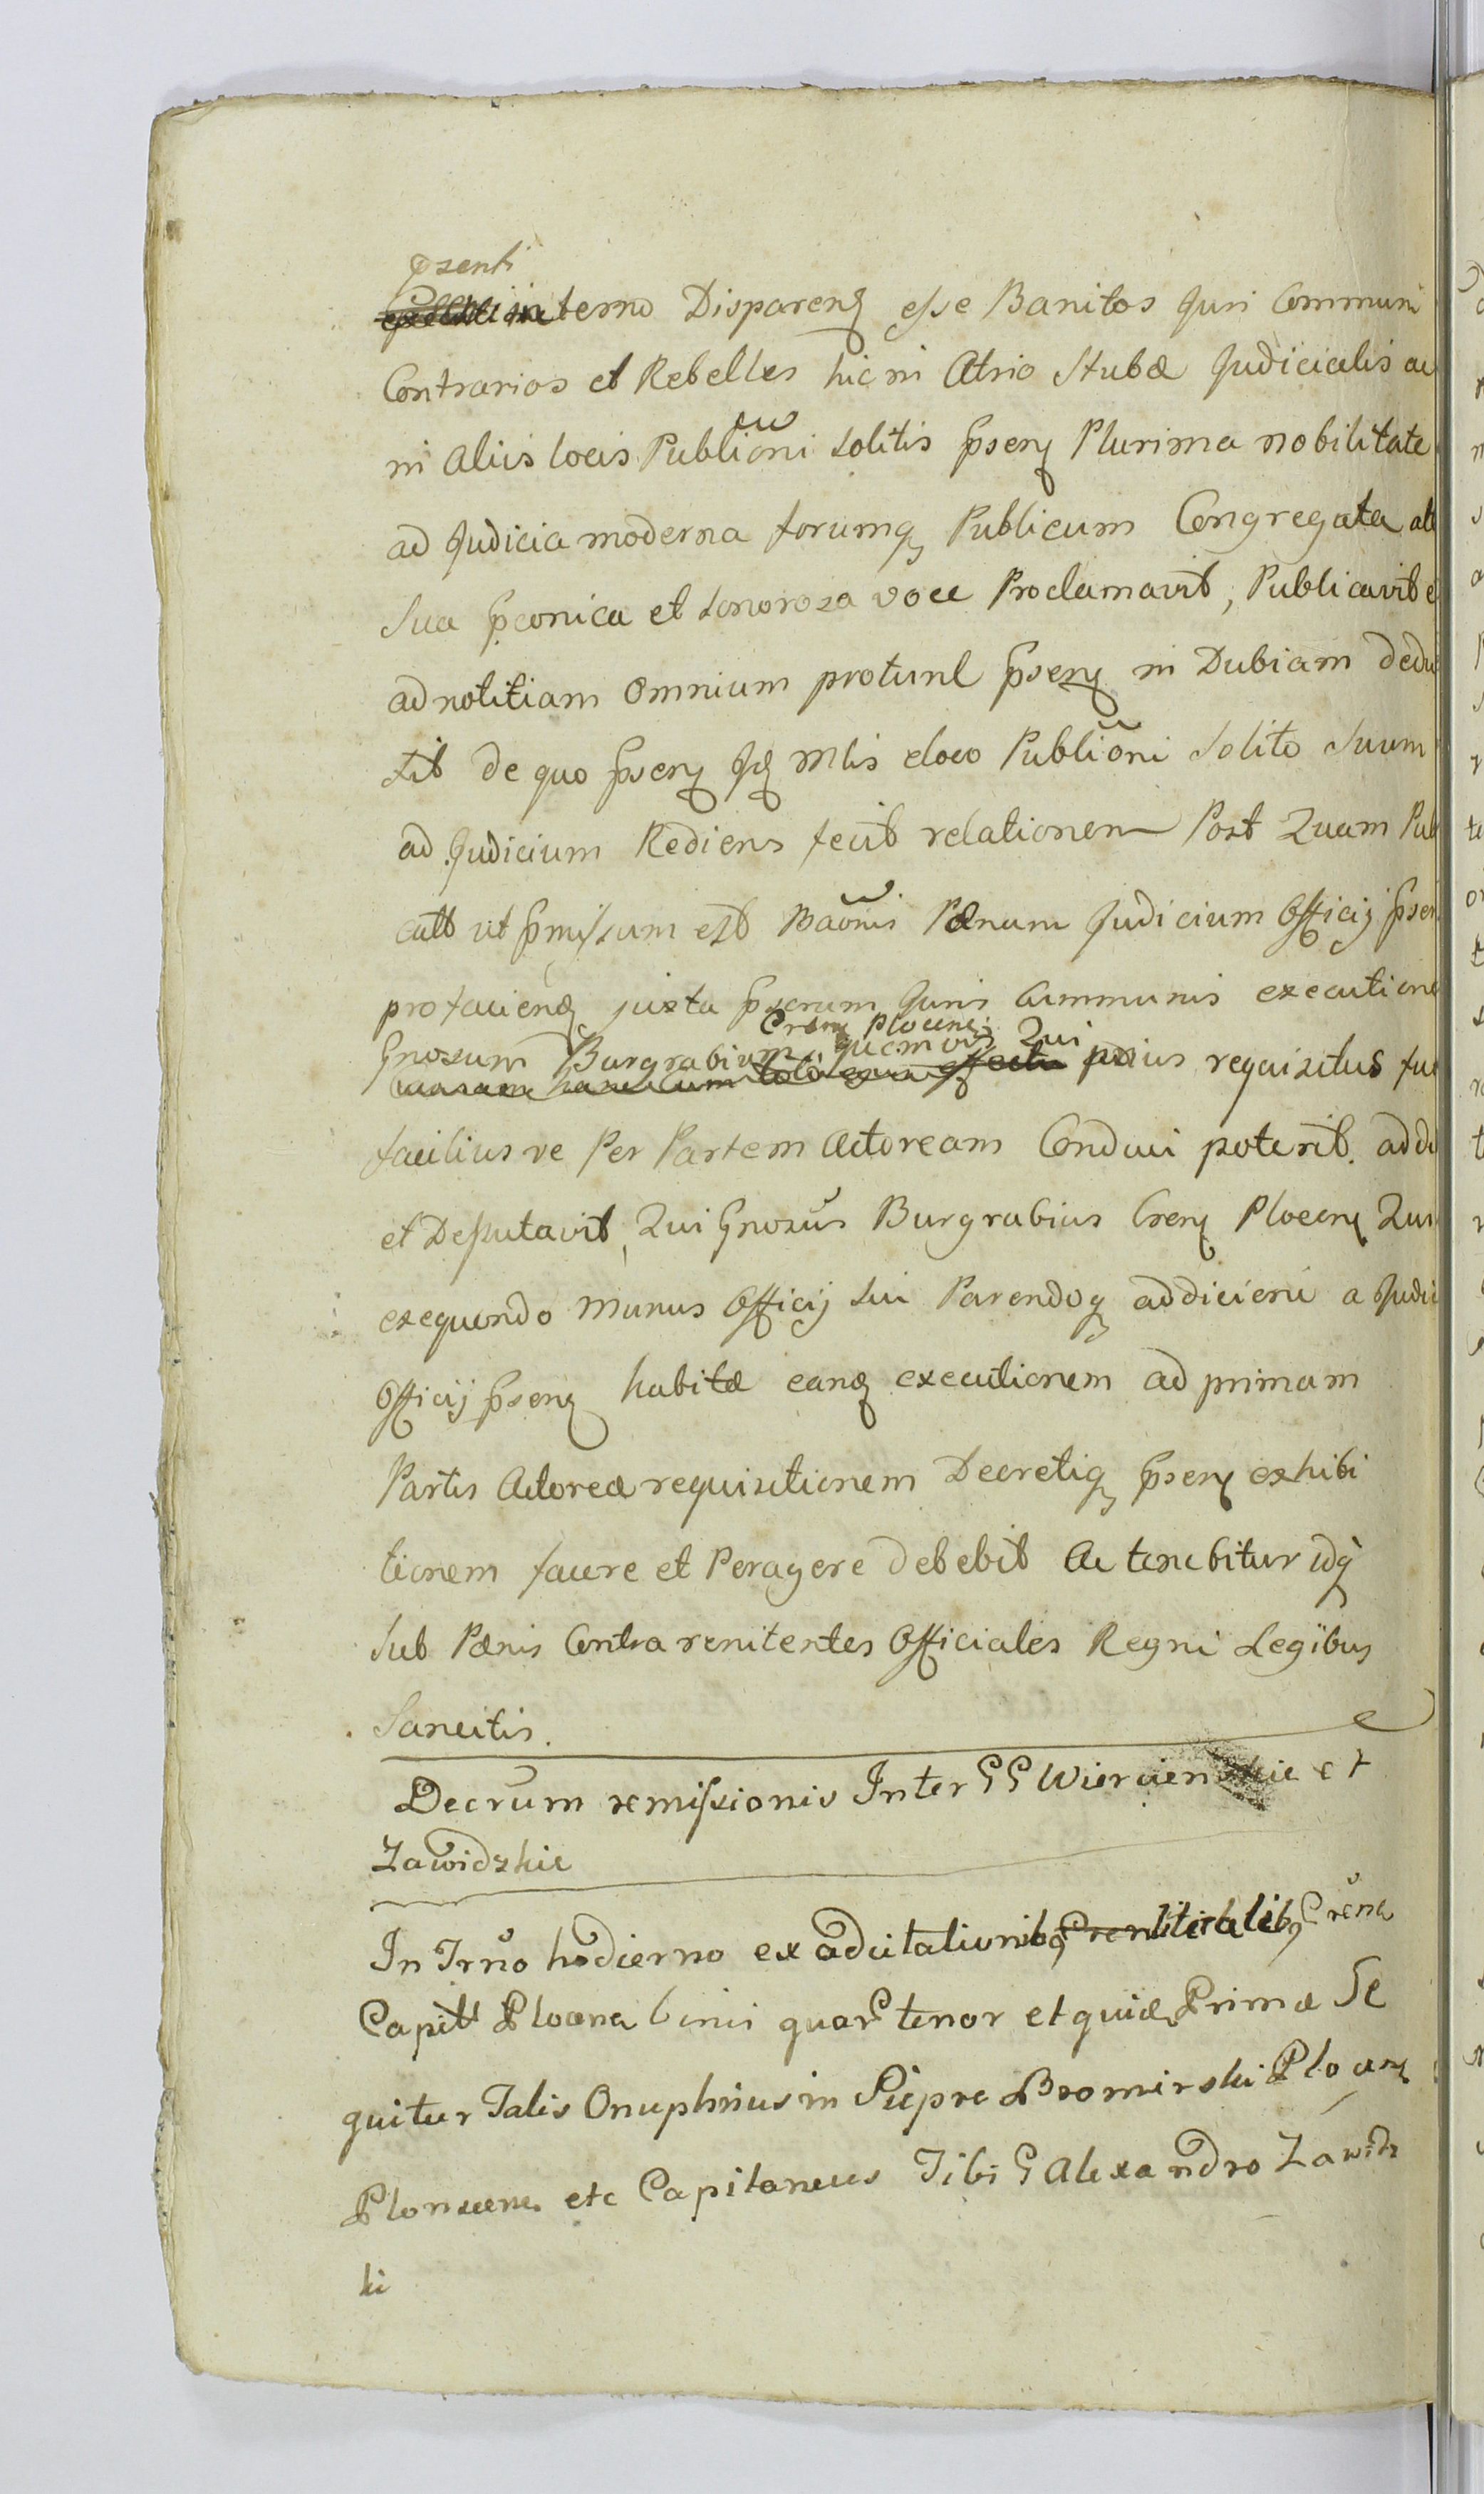 psenti
termo Disparenq esse Banitos Juri Communi
Contrarios et Rebelles hic in Atrio Stubæ Judicialis ac
in Aliis locis Publiõni solitis pseng Plurima nobilitate
ad Judicia moderna forumq Publicum Congregata alt
sua pconica et sonoroza voce Proclamavit, Publicavit e
ad notitiam omnium protunc pseng in Dubiam dedu
xit de quo pseng Jd Mlis eloco Publiõni Solito suum
ad Judicium Rediens fecit relationem Post Quam Pub
catt ut pmissum est Baõnis Pænam Judicium Officij psen
profaciend juxta pscrum Juris Communis executione
Gnosum Burgrabium Crem Plocen quemvis Qui prius requisitus fue
facilius ve Per Partem Actoream Conduci poterit. addi
et Deputavit, Qui Gnosus Burgrabius Creng Ploceng Qui
exequendo munus Officij sui Parendoq addicieni a Judi
Officij pseng habitæ eanq executionem ad primam
Partis Actoreæ requisitionem Decretiq pseng exhibi
tionem facere et Peragere debebit ac tenebitur idq
sub Pænis Contra renitentes Officiales Regni Legibus
Sancitis.
Decrum remissionis Inter GG Wiercienskie et
Zawidzkie
In Trno hodierno ex adcitationibq Crens
Capitt Plocens binis quar tenor et quidē Primæ Se
quitur Talis Onuphrius in Siepre Bromirski Plocens
Plonscens etc Capitaneus Tibi G Alexandro Zawidz
ki